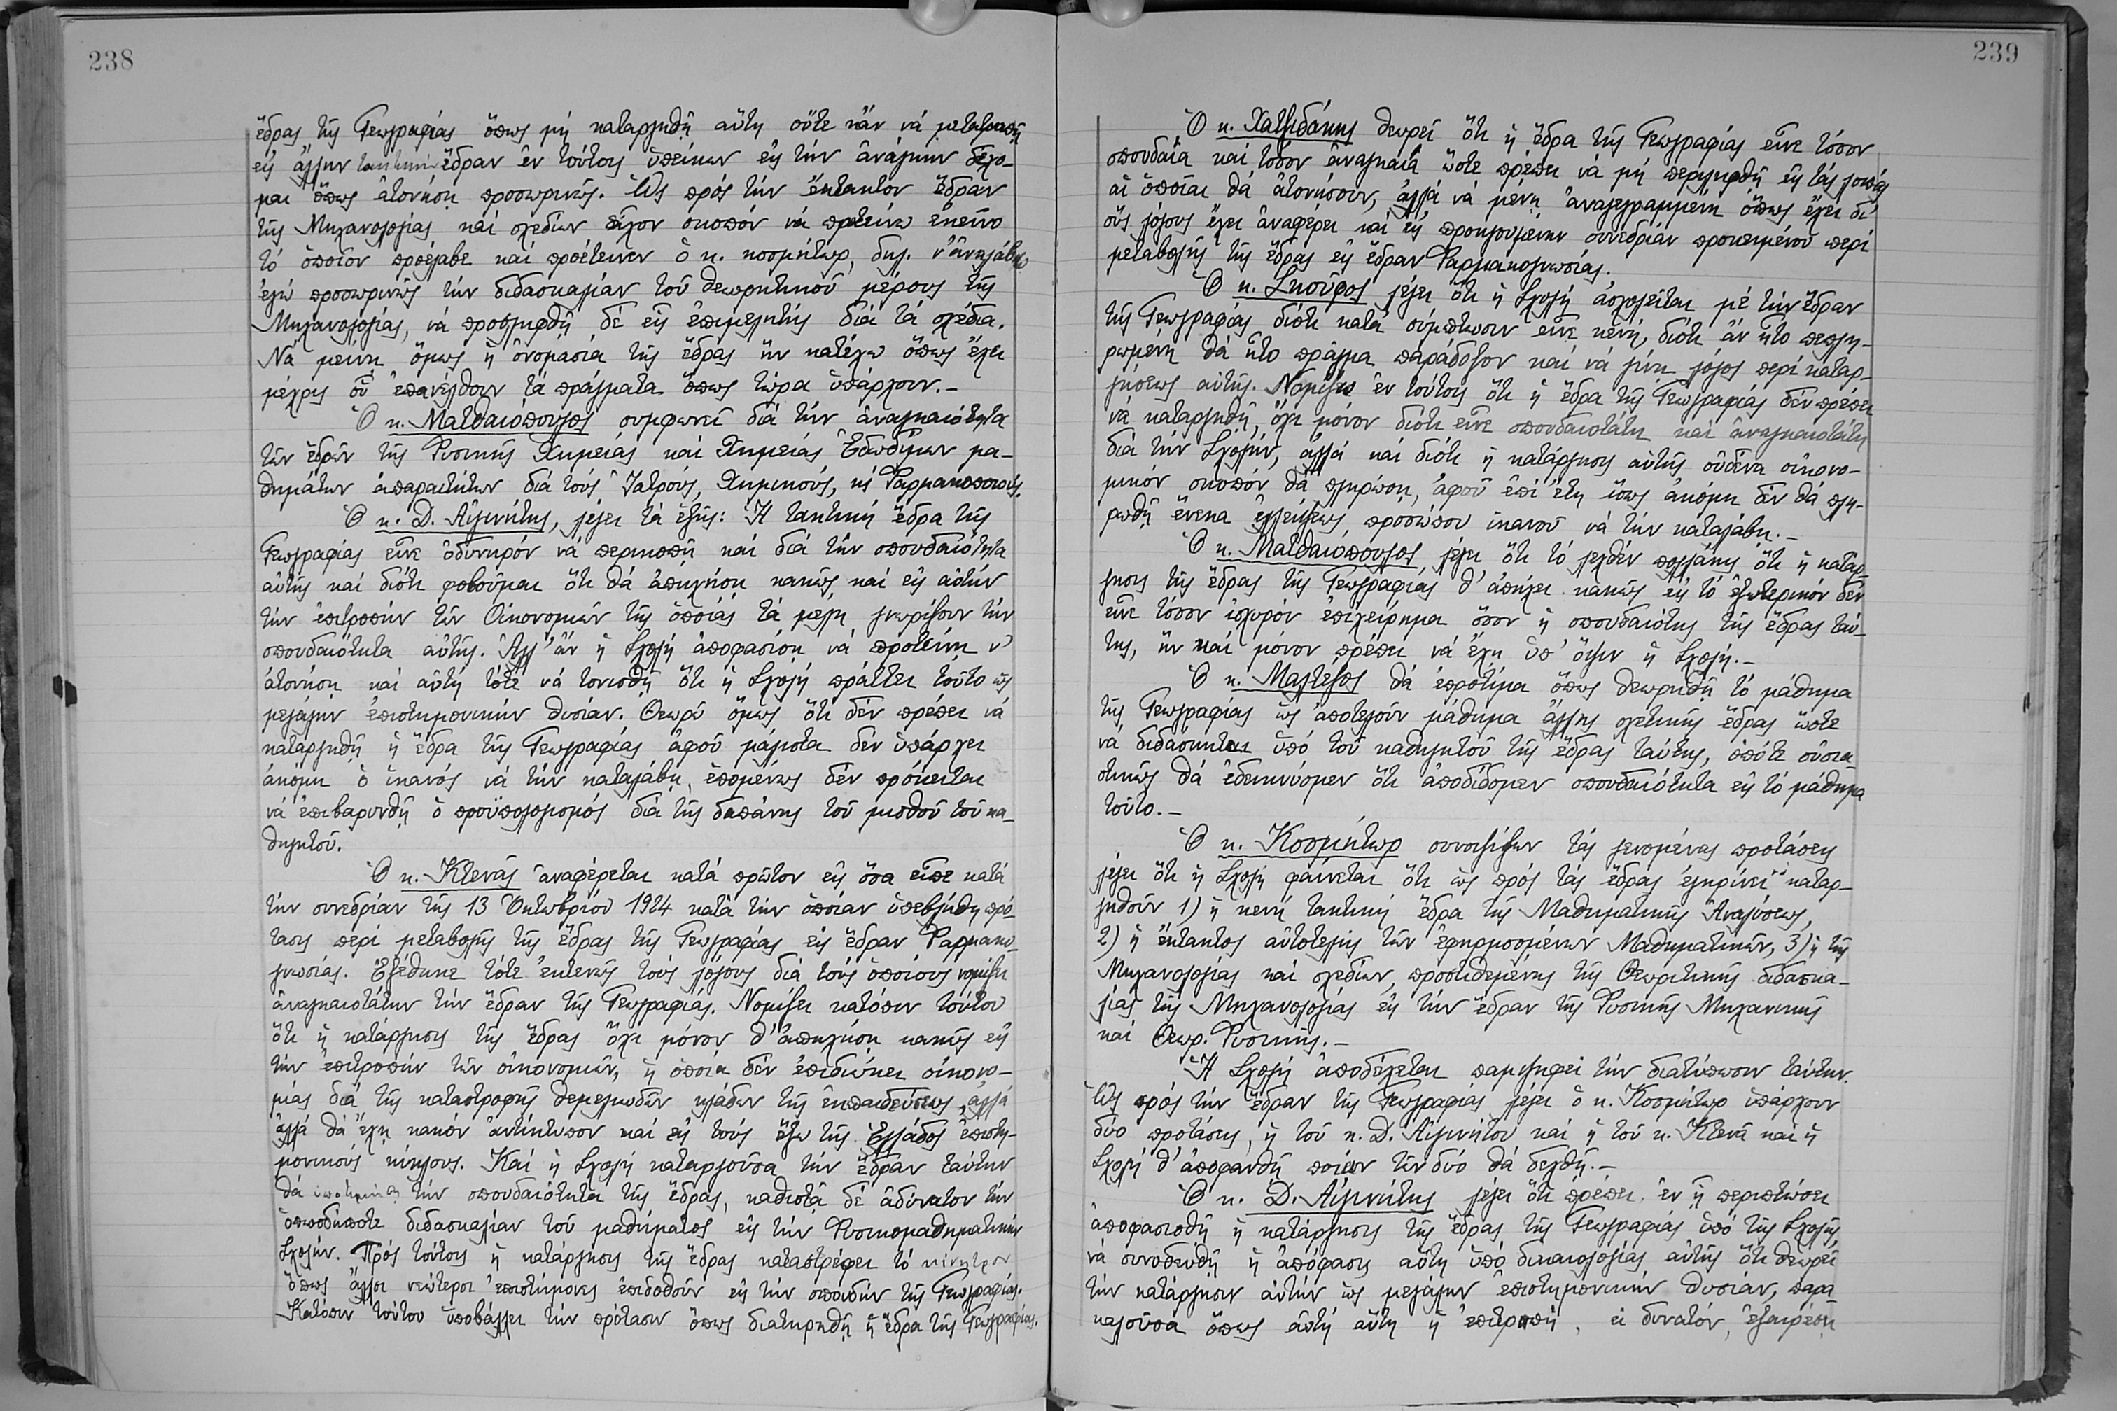 238
ἕδρας τῆς Γεωγραφίας ὅπως μὴ καταργηθῇ αὕτη οὔτε κἂν νὰ μετατραπῇ
εἰς ἄλλην τακτικὴν ἕδραν ἐν τούτοις ὑπείκων εἰς τὴν ἀνάγκην δέχο-
μαι ὅπως ἀτονήσῃ προσωρινῶς. Ὡς πρὸς τὴν ἔκτακτον ἕδραν
τῆς Μηχανολογίας καὶ σχεδίων εἶχον σκοπὸν νὰ προτείνω ἐκεῖνο
τὸ ὁποῖον προέλαβε καὶ προέτεινεν ὁ κ. κοσμήτωρ, δηλ. ν' ἀναλάβω
ἐγὼ προσωρινῶς τὴν διδασκαλίαν τοῦ θεωρητικοῦ μέρους τῆς
Μηχανολογίας, νὰ προσληφθῇ δὲ εἷς ἐπιμελητὴς διὰ τὰ σχέδια.
Νὰ μείνῃ ὅμως ἡ ὀνομασία τῆς ἕδρας ἣν κατέχω ὅπως ἔχει
μέχρις οὗ ἐπανέλθουν τὰ πράγματα ὅπως τώρα ὑπάρχουν.-
Ὁ κ. Ματθαιόπουλος συμφωνεῖ διὰ τὴν ἀναγκαιότητα
τῶν ἑδρῶν τῆς Φυσικῆς Χημείας καὶ Χημείας Ἐδωδίμων μα-
θημάτων ἀπαραιτήτων διὰ τοὺς Ἰατρούς, Χημικούς, κ Φαρμακοποιούς.
Ὁ κ. Δ. Αἰγινήτης, λέγει τὰ ἑξῆς: Ἡ τακτικὴ ἕδρα τῆς
Γεωγραφίας εἶνε ὀδυνηρὸν νὰ περικοπῇ καὶ διὰ τὴν σπουδαιότητα
αὐτῆς καὶ διότι φοβοῦμαι ὅτι θὰ ἀπηχήσῃ κακῶς καὶ εἰς αὐτὴν
τὴν ἐπιτροπὴν τῶν Οἰκονομιῶν τῆς ὁποίας τὰ μέλη γνωρίζουν τὴν
σπουδαιότητα αὐτῆς. Ἀλλ' ἂν ἡ Σχολὴ ἀποφασίσῃ νὰ προτείνῃ ν'
ἀτονήσῃ καὶ αὐτὴ τότε νὰ τονισθῇ ὅτι ἡ Σχολὴ πράττει τοῦτο ὡς
μεγάλην ἐπιστημονικὴν θυσίαν. Θεωρῶ ὅμως ὅτι δὲν πρέπει νὰ
καταργηθῇ ἡ ἕδρα τῆς Γεωγραφίας ἀφοῦ μάλιστα δὲν ὑπάρχει
ἀκόμη ὁ ἱκανὸς νὰ τὴν καταλάβῃ, ἑπομένως δὲν πρόκειται
νὰ ἐπιβαρυνθῇ ὁ προϋπολογισμὸς διὰ τῆς δαπάνης τοῦ μισθοῦ τοῦ κα-
θηγητοῦ.
Ὁ κ. Κτενᾶς ἀναφέρεται κατὰ πρῶτον εἰς ὅσα εἶπε κατὰ
τὴν συνεδρίαν τῆς 13 Ὀκτωβρίου 1924 κατὰ τὴν ὁποίαν ὑπεβλήθη πρό-
τασις περὶ μεταβολῆς τῆς ἕδρας τῆς Γεωγραφίας εἰς ἕδραν Φαρμακο-
γνωσίας. Ἐξέθηκε τότε ἐκτενῶς τοὺς λόγους διὰ τοὺς ὁποίους νομίζει
ἀναγκαιοτάτην τὴν ἕδραν τῆς Γεωγραφίας. Νομίζει κατόπιν τούτου
ὅτι ἡ κατάργησις τῆς ἕδρας ὄχι μόνον θ' ἀπηχήσῃ κακῶς εἰς
τὴν ἐπιτροπὴν τῶν οἰκονομιῶν, ἡ ὁποία δὲν ἐπιδιώκει οἰκονο-
μίας διὰ τῆς καταστροφῆς θεμελιωδῶν κλάδων τῆς ἐκπαιδεύσεως, ἀλλὰ
ἀλλὰ θὰ ἔχῃ κακὸν ἀντίκτυπον καὶ εἰς τοὺς ἔξω τῆς Ἑλλάδος ἐπιστη-
μονικοὺς κύκλους. Καὶ ἡ Σχολὴ καταργοῦσα τὴν ἕδραν ταύτην
θὰ τὴν σπουδαιότητα τῆς ἕδρας, καθιστᾷ δὲ ἀδύνατον τὴν
ὁπωσδήποτε διδασκαλίαν τοῦ μαθήματος εἰς τὴν Φυσικομαθηματικὴν
Σχολήν. Πρὸς τούτοις ἡ κατάργησις τῆς ἕδρας καταστρέφει τὸ κίνητρον
ὅπως ἄλλοι νεώτεροι ἐπιστήμονες ἐπιδοθοῦν εἰς τὴν σπουδὴν τῆς Γεωγραφίας.
Κατόπιν τούτου ὑποβάλλει τὴν πρότασιν ὅπως διατηρηθῇ ἡ ἕδρα τῆς Γεωγραφίας.
239
Ὁ κ. Χατζιδάκης θεωρεῖ ὅτι ἡ ἕδρα τῆς Γεωγραφίας εἶνε τόσον
σπουδαία καὶ τόσον ἀναγκαία ὥστε πρέπει νὰ μὴ περιληφθῇ εἰς τὰς λοιπὰς
αἱ ὁποῖαι θὰ ἀτονήσουν, ἀλλὰ νὰ μένῃ ἀναγεγραμμένη ὅπως ἔχει δι'
οὓς λόγους ἔχει ἀναφέρει καὶ εἰς προηγουμένην συνεδρίαν προκειμένου περὶ
μεταβολῆς τῆς ἕδρας εἰς ἕδραν Φαρμακογνωσίας.
Ὁ κ. Σκοῦφος λέγει ὅτι ἡ Σχολὴ ἀσχολεῖται μὲ τὴν ἕδραν
τῆς Γεωγραφίας διότι κατὰ σύμπτωσιν εἶνε κενή, διότι ἂν ἦτο πεπλη-
ρωμένη θὰ ἦτο πρᾶγμα παράδοξον καὶ νὰ γίνῃ λόγος περὶ καταρ-
γήσεως αὐτῆς. Νομίζω ἐν τούτοις ὅτι ἡ ἕδρα τῆς Γεωγραφίας δὲν πρέπει
νὰ καταργηθῇ, ὄχι μόνον διότι εἶνε σπουδαιοτάτη καὶ ἀναγκαιοτάτη
διὰ τὴν Σχολήν, ἀλλὰ καὶ διότι ἡ κατάργησις αὐτῆς οὐδένα οἰκονο-
μικὸν σκοπὸν θὰ πληρώσῃ, ἀφοῦ ἐπὶ ἔτη ἴσως ἀκόμη δὲν θὰ πλη-
ρωθῇ ἕνεκα ἐλλείψεως προσώπου ἱκανοῦ νὰ τὴν καταλάβῃ.-
Ὁ κ. Ματθαιόπουλος, λέγει ὅτι τὸ λεχθὲν πολλάκις ὅτι ἡ κατάρ-
γησις τῆς ἕδρας τῆς Γεωγραφίας θ' ἀπήχει κακῶς εἰς τὸ ἐξωτερικὸν δὲν
εἶνε τόσον ἰσχυρὸν ἐπιχείρημα ὅσον ἡ σπουδαιότης τῆς ἕδρας ταύ-
της, ἣν καὶ μόνον πρέπει νὰ ἔχῃ ὑπ' ὄψιν ἡ Σχολή.-
Ὁ κ. Μαλτέζος θὰ ἐπροτίμα ὅπως θεωρηθῇ τὸ μάθημα
τῆς Γεωγραφίας ὡς ἀποτελοῦν μάθημα ἄλλης σχετικῆς ἕδρας ὥστε
νὰ διδάσκηται ὑπὸ τοῦ καθηγητοῦ τῆς ἕδρας ταύτης, ὁπότε οὐσια-
στικῶς θὰ ἐδεικνύομεν ὅτι ἀποδίδομεν σπουδαιότητα εἰς τὸ μάθημα
τοῦτο.-
Ὁ κ. Κοσμήτωρ συνοψίζων τὰς γενομένας προτάσεις
λέγει ὅτι ἡ Σχολὴ φαίνεται ὅτι ὡς πρὸς τὰς ἕδρας ἐγκρίνει καταρ-
γηθοῦν 1) ἡ κενὴ τακτικὴ ἕδρα τῆς Μαθηματικῆς Ἀναλύσεως,
2) ἡ ἔκτακτος αὐτοτελὴς τῶν ἐφηρμοσμένων Μαθηματικῶν, 3) ἡ τῆς
Μηχανολογίας καὶ σχεδίων, προστιθεμένης τῆς Θεωριτικῆς διδασκα-
λίας τῆς Μηχανολογίας εἰς τὴν ἕδραν τῆς Φυσικῆς Μηχανικῆς
καὶ Θεωρ. Φυσικῆς.-
Ἡ Σχολὴ ἀποδέχεται παμψηφεὶ τὴν διατύπωσιν ταύτην.
Ὡς πρὸς τὴν ἕδραν τῆς Γεωγραφίας λέγει ὁ κ. Κοσμήτωρ ὑπάρχουν
δύο προτάσεις, ἡ τοῦ κ. Δ. Αἰγινήτου καὶ ἡ τοῦ κ. Κτενᾶ καὶ ἡ
Σχολὴ θ' ἀποφανθῇ ποίαν τῶν δύο θὰ δεχθῇ.-
Ὁ κ. Δ. Αἰγινήτης λέγει ὅτι πρέπει ἐν ᾗ περιπτώσει
ἀποφασισθῇ ἡ κατάργησις τῆς ἕδρας τῆς Γεωγραφίας ὑπὸ τῆς Σχολῆς,
νὰ συνοδευθῇ ἡ ἀπόφασις αὕτη ὑπὸ δικαιολογίας αὐτῆς ὅτι θεωρεῖ
τὴν κατάργησιν αὐτὴν ὡς μεγάλην ἐπιστημονικὴν θυσίαν, παρα-
καλοῦσα ὅπως αὐτὴ αὕτη ἡ ἐπιτροπή, εἰ δυνατόν, ἐξαιρέσῃ